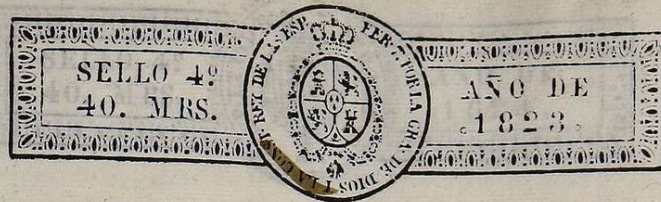 SELLO 4º
40. MRS.
FER. 7. POR LA GRA. DE DIOS Y LA CONST. REY DE LAS ESP.
AÑO DE
1823.